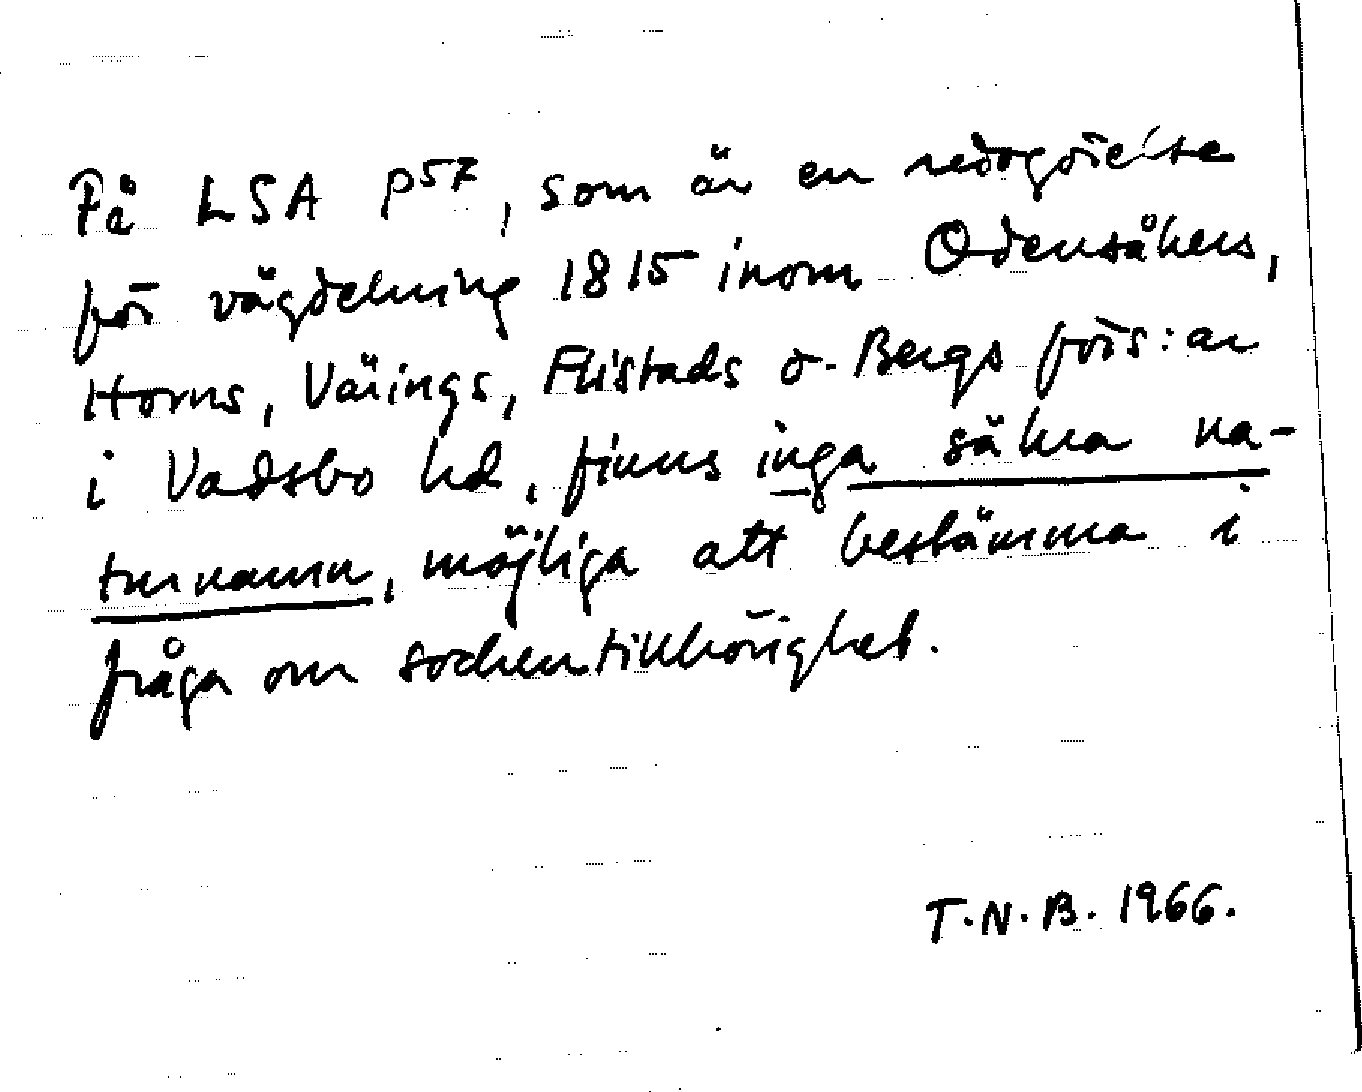 På LSA P57, som är en redogörelse
för vägdelning 1815 inom Odensåkers,
Horns, Värings, Flistads o. Bergs förs:ar
i Vadsbo hd, finns inga säkra na-
turnamn, möjliga att bestämma i
fråga om sockentillhörighet.
T.N.B. 1966.